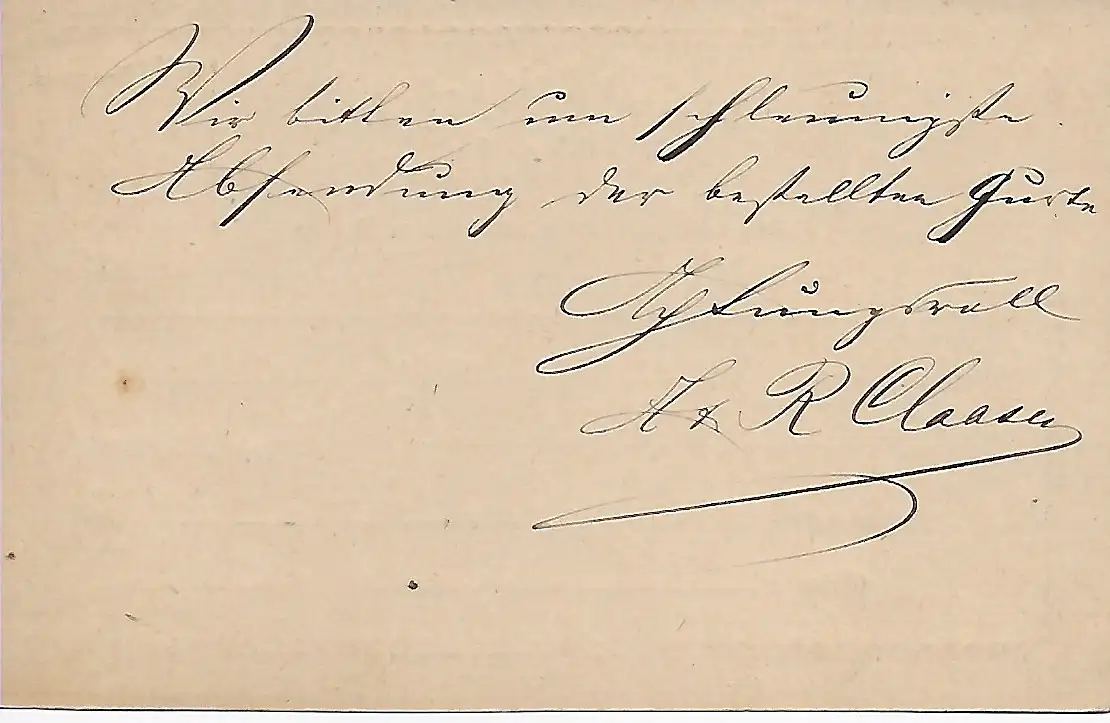 Wir bitten um schleunigste
Absendung der bestellten Gurte
Achtungsvoll
A & R Claasen